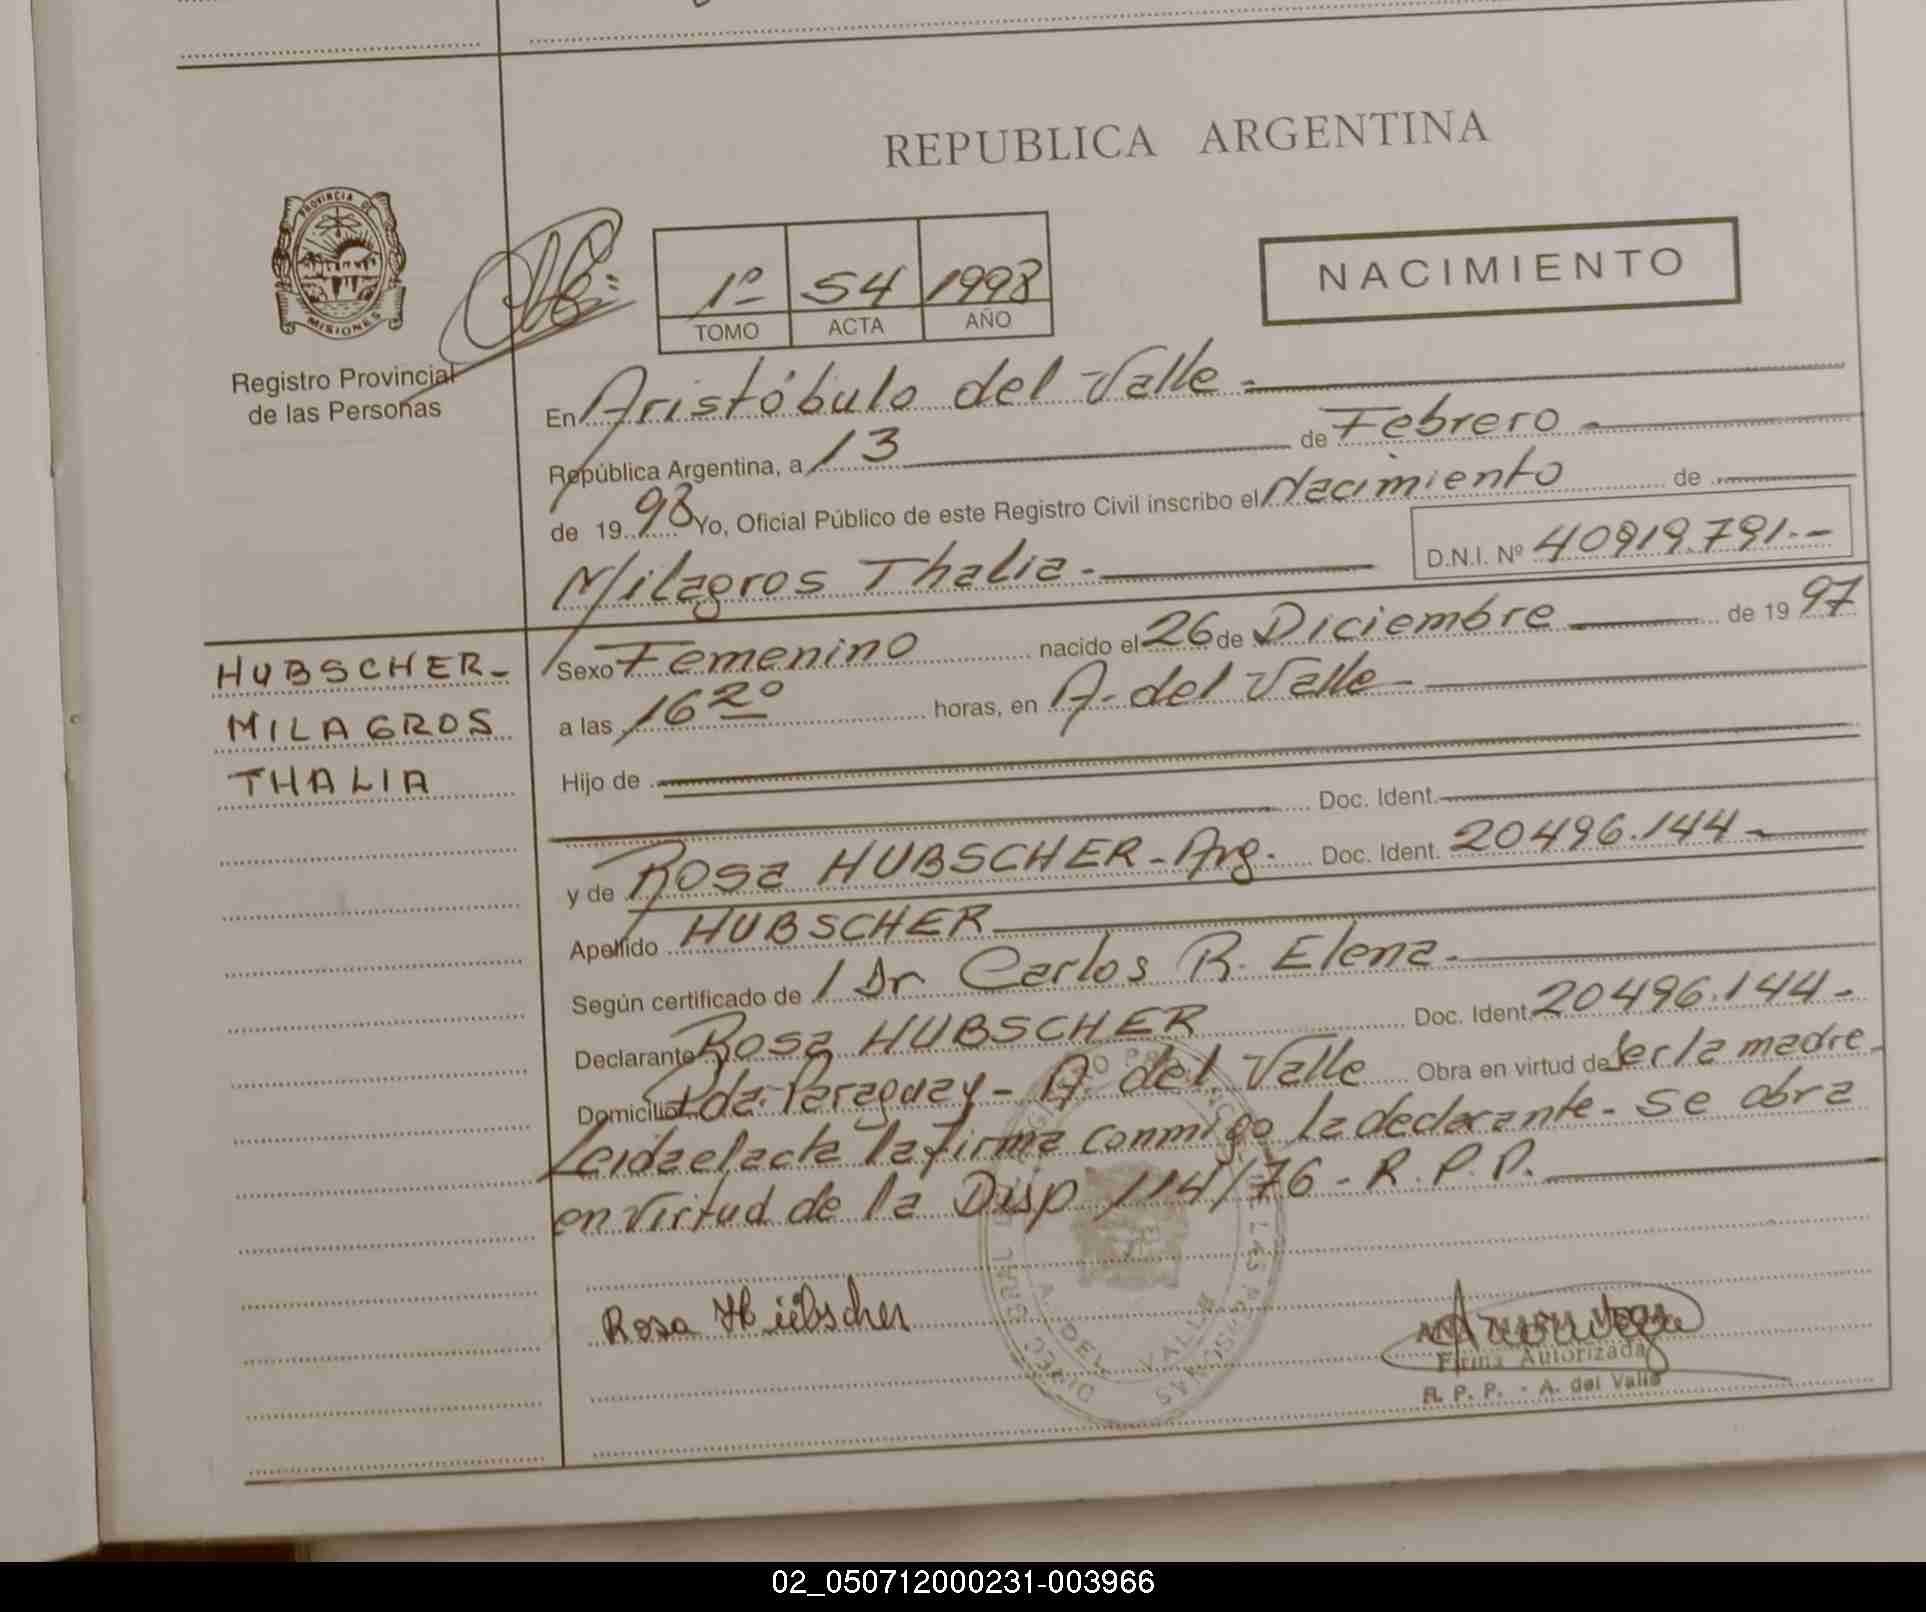 REPUBLICA ARGENTINA
PROVINCIA DE
MISIONES
Registro Provincial
de las Personas
1º 54 1998
TOMO ACTA AÑO
NACIMIENTO
En Aristóbulo del Valle.-
República Argentina, a 13 de Febrero
de 1998 Yo, Oficial Público de este Registro Civil inscribo el Nacimiento de
Milagros Thalia.- D.N.I. Nº 40919.791.-
HUBSCHER-
MILAGROS
THALIA
Sexo Femenino nacido el 26 de Diciembre de 1997
a las 16 20 horas, en A. del Valle-
Hijo de
Doc. Ident.
y de Rosa HUBSCHER-Arg. Doc. Ident. 20496.144-
Apellido HUBSCHER
Según certificado de Dr Carlos R. Elena.
Declarante Rosa HUBSCHER Doc. Ident. 20496.144-
Domicilio Pda. Paraguay - A. del Valle Obra en virtud de ser la madre
Leida el acta la firma conmigo la declarante- se obra
en virtud de la Disp 114/76-R.P.P.
Rosa Hübscher
DEL VALLE
Firma Autorizada
R. P. P. - A. del Valle
02_050712000231-003966